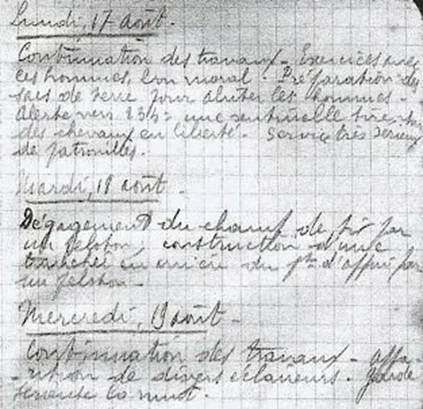 Lundi, 17 août.
Continuation des travaux - Exercices avec
les hommes, bon moral. Préparation des
sacs de terre pour abriter les hommes -
Alerte vers 23h : une sentinelle tire sur
des chevaux en liberté. Service très sérieux
de patrouilles.
Mardi, 18 août -
Dégagement du champ de tir par
un peloton, construction d'une
tranchée en arrière du pt d'appui par
un peloton.
Mercredi, 19 août -
Continuation des travaux - Appa-
-rition de divers éclaireurs - Garde
sérieuse la nuit.